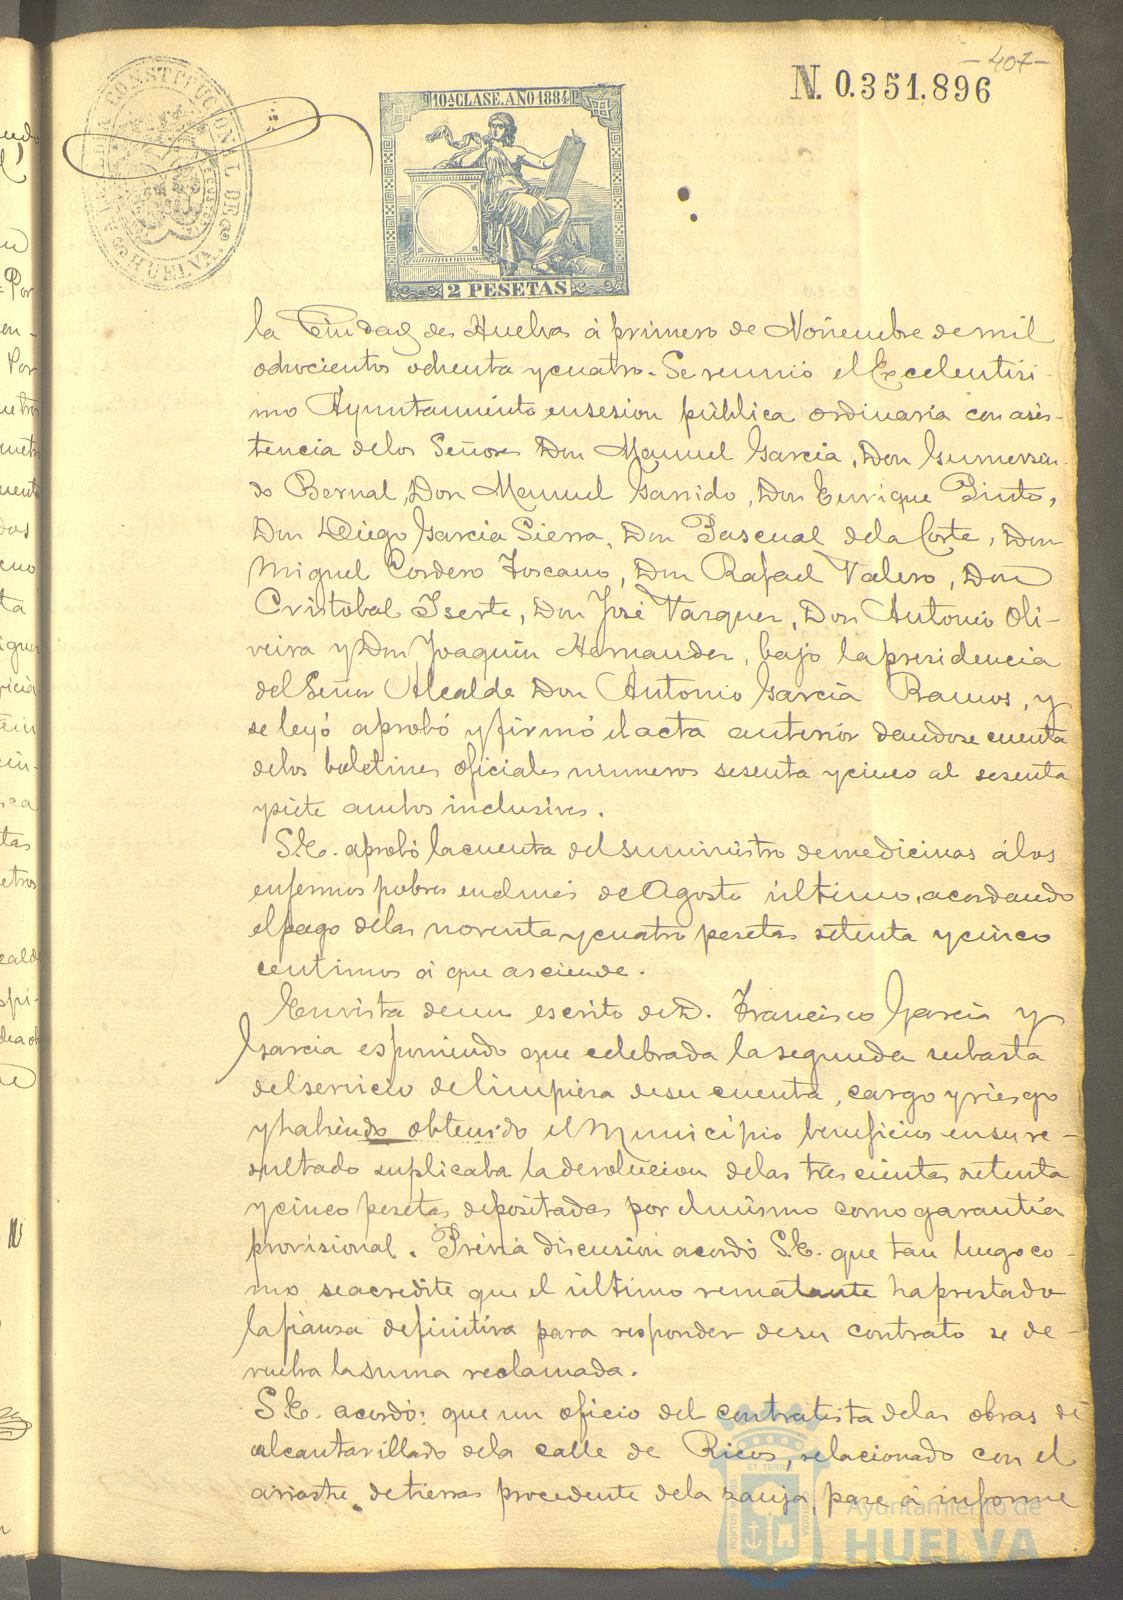 - 407 -
N. 0.351,896
ALCALDIA CONSTITUCIONAL DE HUELVA
10ª CLASE. AÑO 1884
2 PESETAS
la Ciudad de Huelva á primero de Noviembre de mil
ochocientos ochenta y cuatro. Se reunió el Excelentisi-
mo Ayuntamiento en sesion pública ordinaria con asis-
tencia de los Señores Don Manuel Garcia, Don Gumersin-
do Bernal, Don Manuel Garrido, Don Enrique Pinto,
Don Diego Garcia Sierra, Don Pascual de la Corte, Don
Miguel Cordero Toscano, Don Rafael Valero, Don
Cristobal Iserte, Don José Vazquez, Don Antonio Oli-
veira y Don Joaquin Hernandez, bajo la presidencia
del Señor Alcalde Don Antonio Garcia Ramos, y
se leyó aprobó y firmó el acta anterior dandose cuenta
de los boletines oficiales números sesenta y cinco al sesenta
y siete ambos inclusives.
S.E. aprobó la cuenta del suministro de medicinas á los
enfermos pobres en el mes de Agosto último, acordando
el pago de las noventa y cuatro pesetas setenta y cinco
centimos á que asciende.
En vista de un escrito de D. Francisco Garcia y
Garcia esponiendo que celebrada la segunda subasta
del servicio de limpieza de su cuenta, cargo y riesgo
y habiendo obtenido el Municipio beneficios en su re-
sultado suplicaba la devolucion de las trescientas setenta
y cinco pesetas depositadas por el mismo como garantia
provisional. Prévia discusion acordó S.E. que tan luego co-
mo se acredite que el último rematante ha prestado
la fianza definitiva para responder de su contrato se de-
vuelva la suma reclamada.
S.E. acordó: que un oficio del contratista de las obras de
alcantarillado de la calle de Ricos, relacionado con el
arrastre de tierras procedente de la zanja, pase á informe
Ayuntamiento de
HUELVA